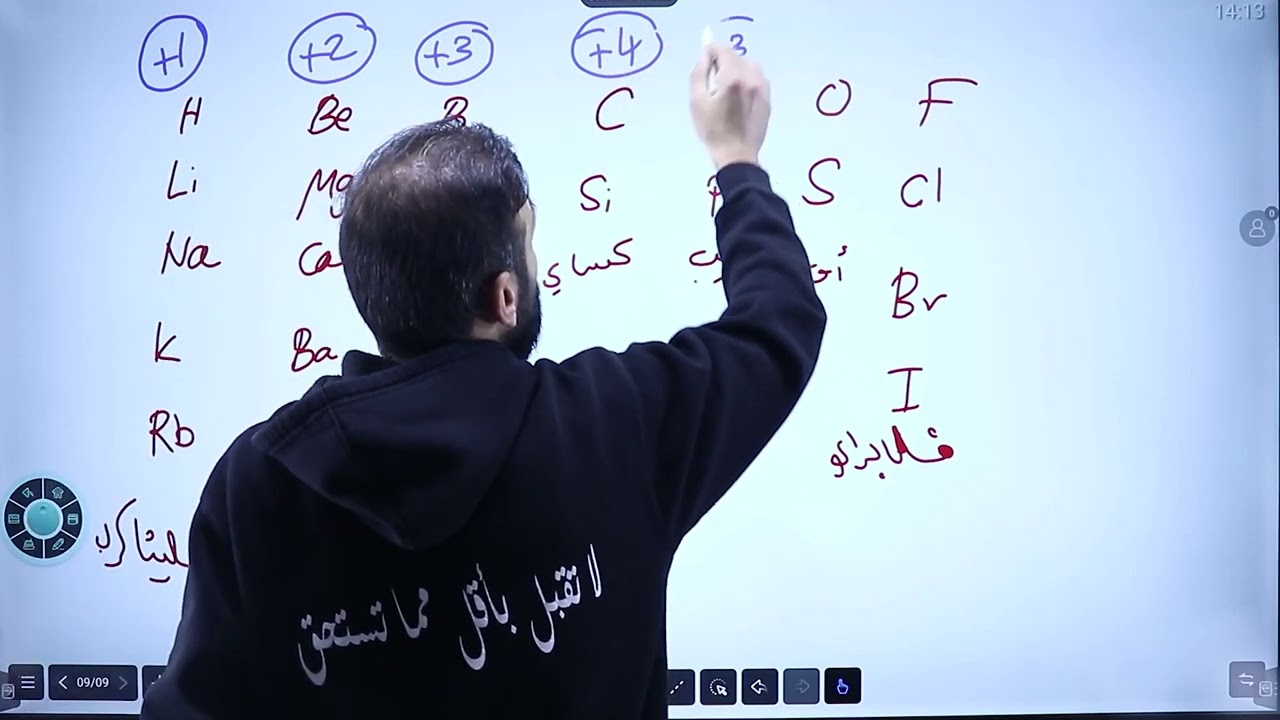 14:13
+1 +2 +3 +4 3
H Be B C O F
Li Mg Si P S Cl
Na Ca كساي
Br
K Ba I
Rb
لا تقبل بأقل مما تستحق
09/09
0